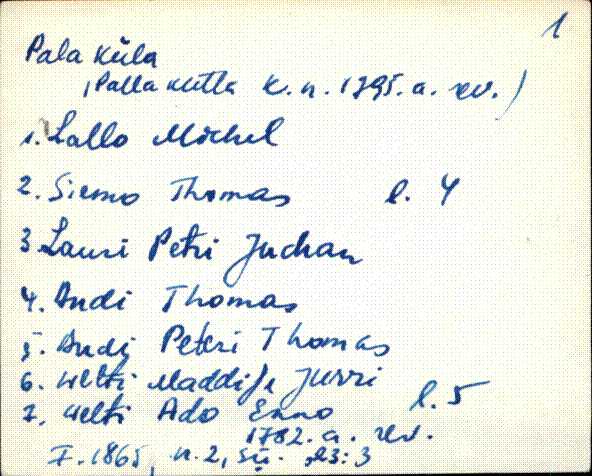 1
Pala küla
(Palla külla k. n. 1795. a. rev.)
1. Lallo Michel
2. Siemo Thomas l. 4
3. Lauri Petri Juchan
4. Andi Thomas
5. Andi Petri Thomas
6. Welti Maddise Jurri
7. Welti Ado Enno l. 5
1782. a. rev.
F. 1865, n. 2, sü. 3